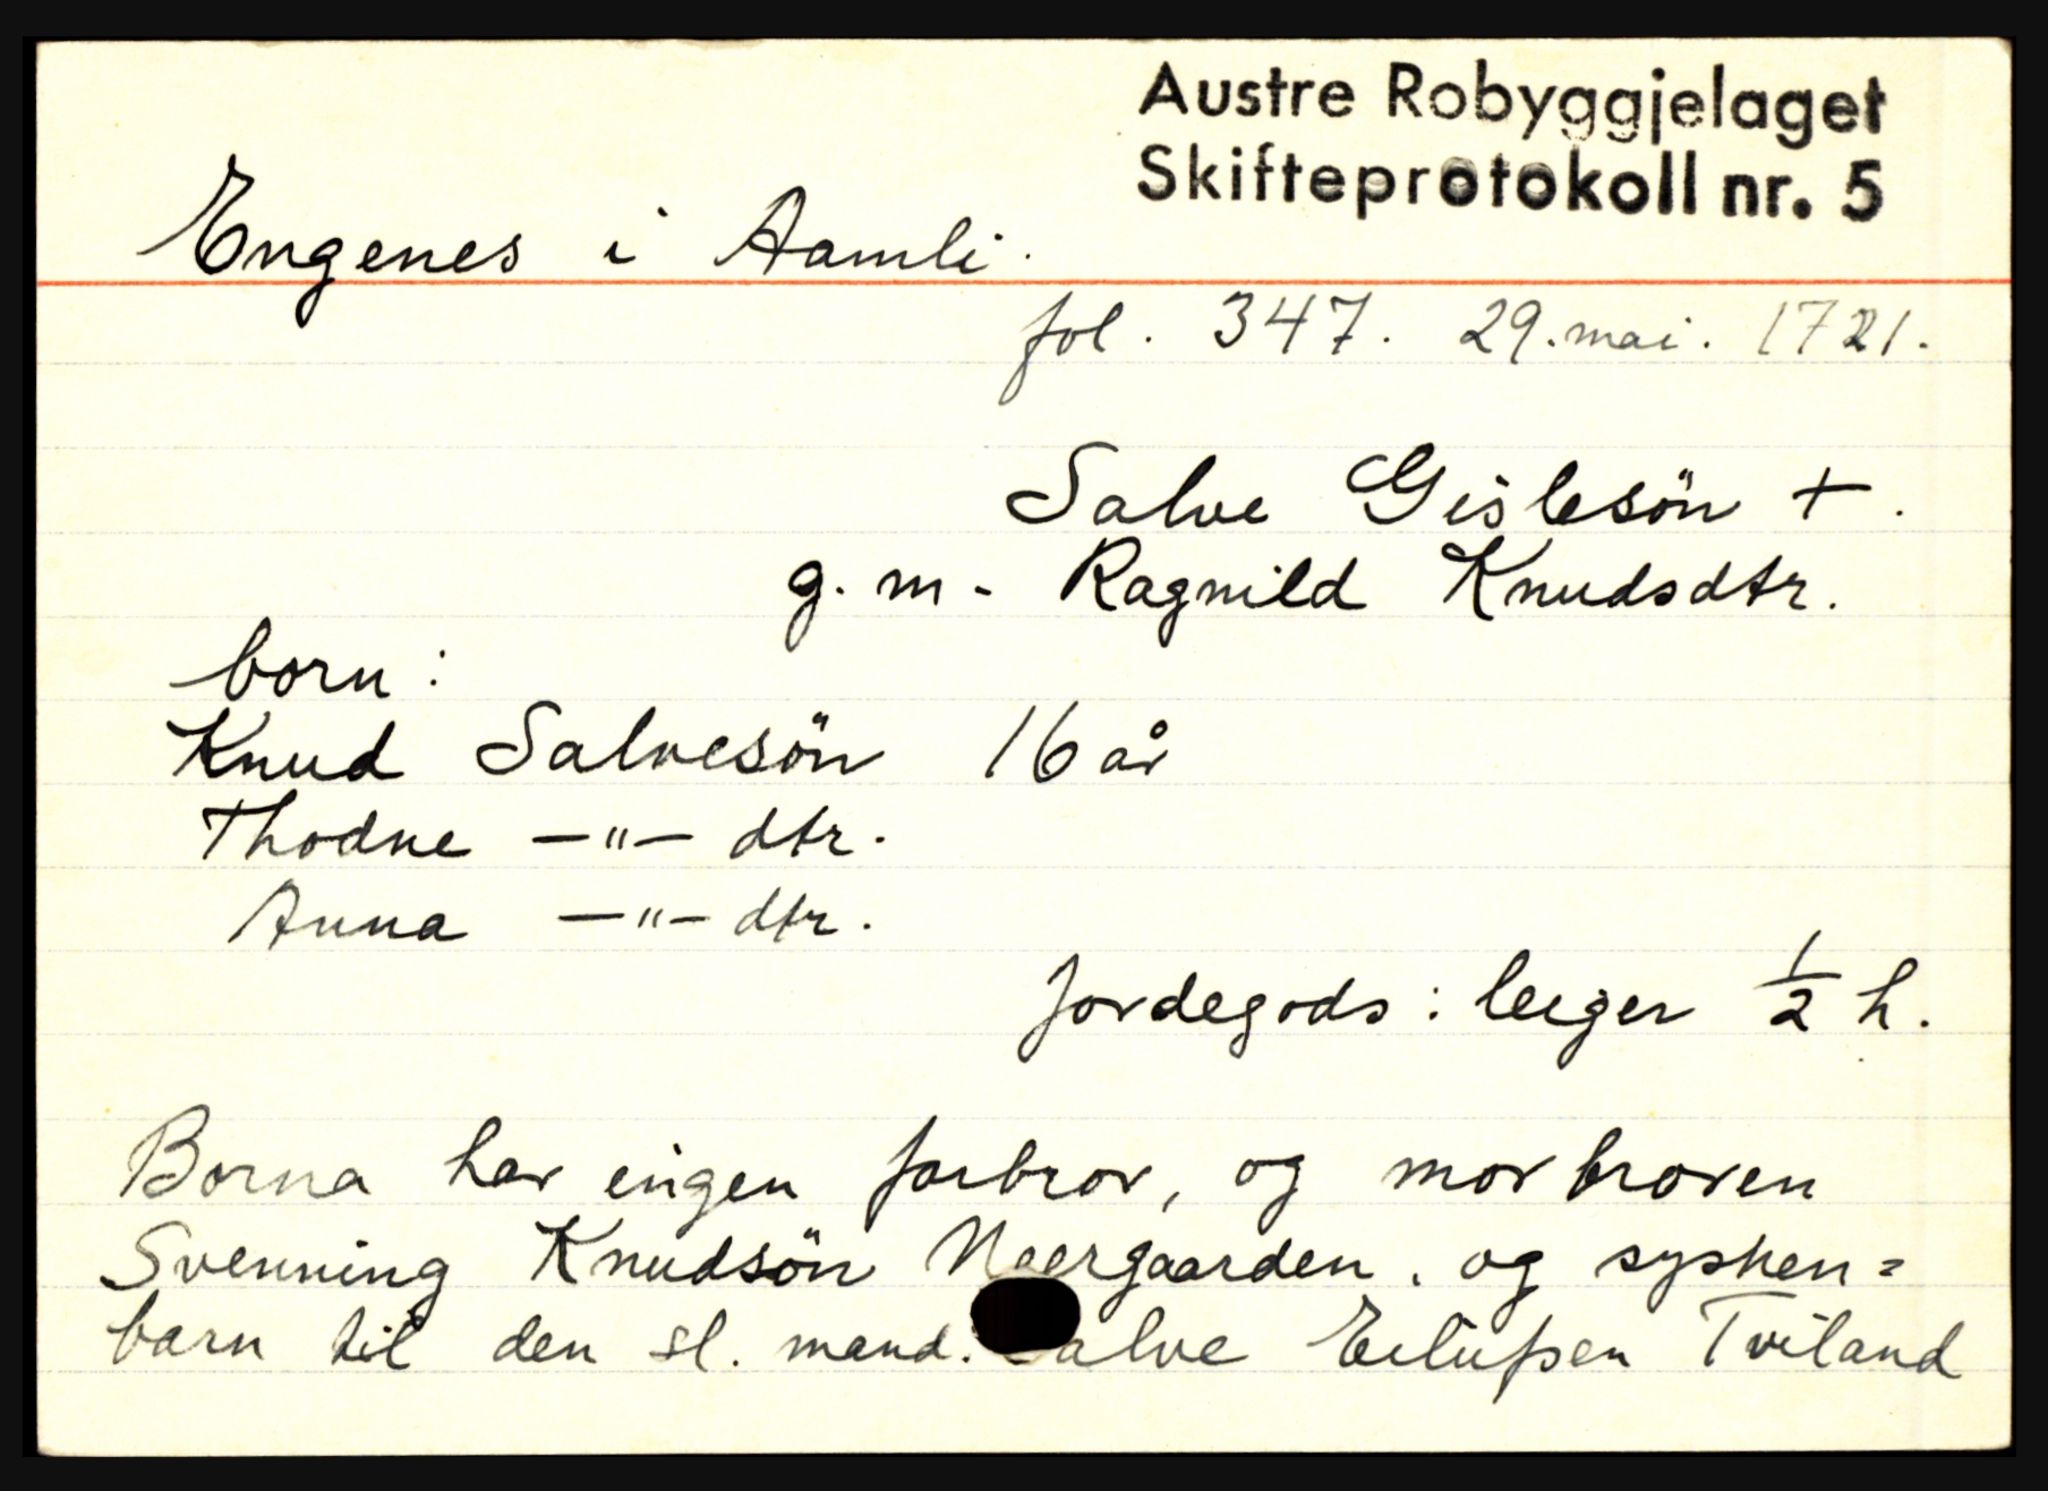 Austre Robyggjelaget
Skifteprotokoll nr. 5
Engenes i Aamli.
fol. 347. 29. mai. 1721.
Salve Gislesön +.
g. m. Ragnild Knudsdtr.
born:
Knud Salvesön 16 år
Thodne —"— dtr.
Anna —"— dtr.
Jordegods: leiger 1/2 h.
Borna har eigen farbror, og morbroren
Svenning Knudsön Neergaarden. og sysken=
barn til den sl. mand. Salve Tviland